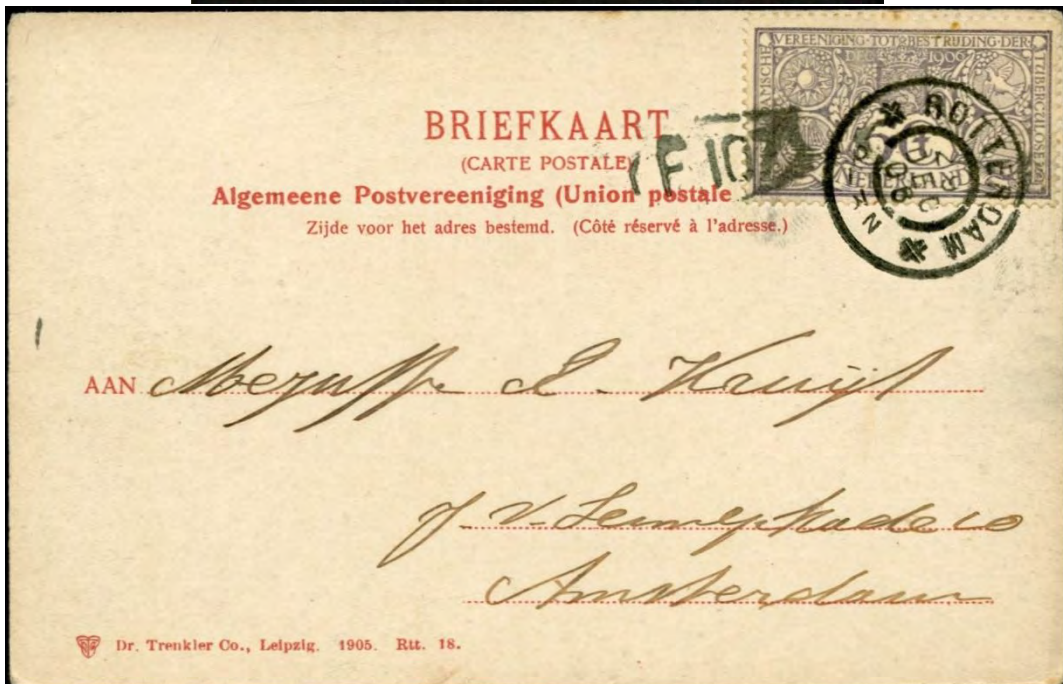 VEREENIGING TOT BESTRIJDING DER
DEC. 1906
BRIEFKAART
(CARTE POSTALE)
F 10
ROTTERDAM
Algemeene Postvereeniging (Union postale
Zijde voor het adres bestemd. (Côté réservé à l'adresse.)
AAN Mejuffr. E. Kruijt
J. v. Lennepkade 10
Amsterdam
Dr. Trenkler Co., Leipzig. 1905. Rtt. 18.